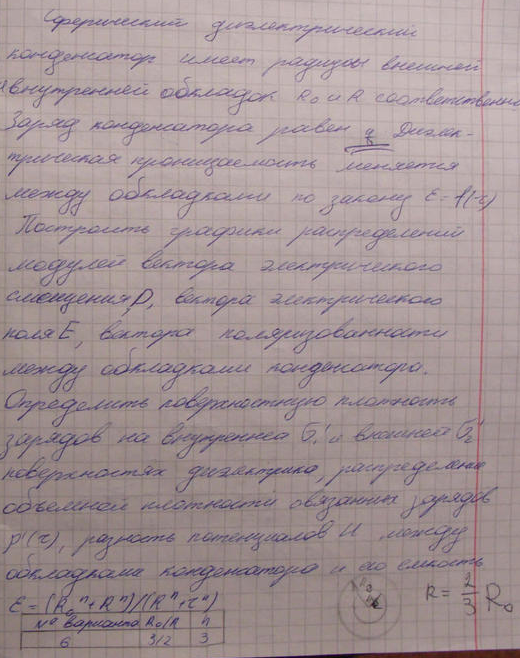 Сферический диэлектрический
конденсатор имеет радиусы внешней
и внутренней обкладок R₀ и R соответственно
Заряд конденсатора равен q Диэлек-
трическая проницаемость меняется
между обкладками по закону ε = f(r)
Построить графики распределений
модулей вектора электрического
смещения D, вектора электрического
поля E, вектора поляризованности
между обкладками конденсатора.
Определить поверхностную плотность
зарядов на внутренней σ₁' и внешней σ₂'
поверхностях диэлектрика, распределение
объемной плотности связанных зарядов
ρ'(r), разность потенциалов U между
обкладками конденсатора и его емкость
ε = (R₀ⁿ + Rⁿ)/(Rⁿ + rⁿ)
R = 2/3 R₀
№ варианта R₀/R n
6 3/2 3